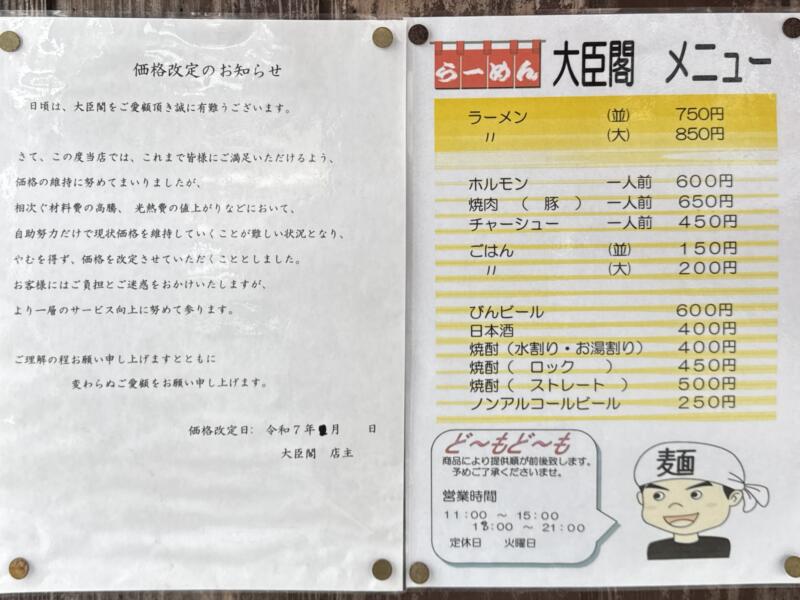 価格改定のお知らせ
日頃は、大臣閣をご愛顧頂き誠に有難うございます。
さて、この度当店では、これまで皆様にご満足いただけるよう、
価格の維持に努めてまいりましたが、
相次ぐ材料費の高騰、 光熱費の値上がりなどにおいて、
自助努力だけで現状価格を維持していくことが難しい状況となり、
やむを得ず、価格を改定させていただくこととしました。
お客様にはご負担とご迷惑をおかけいたしますが、
より一層のサービス向上に努めて参ります。
ご理解の程お願い申し上げますとともに
変わらぬご愛顧をお願い申し上げます。
価格改定日: 令和7年 月 日
大臣閣 店主
らーめん 大臣閣 メニュー
ラーメン (並) 750円
〃 (大) 850円
ホルモン 一人前 600円
焼肉 ( 豚 ) 一人前 650円
チャーシュー 一人前 450円
ごはん (並) 150円
〃 (大) 200円
びんビール 600円
日本酒 400円
焼酎(水割り・お湯割り) 400円
焼酎( ロック ) 450円
焼酎( ストレート ) 500円
ノンアルコールビール 250円
ど〜もど〜も
商品により提供順が前後致します。
予めご了承くださいませ。
営業時間
11:00 〜 15:00
18:00 〜 21:00
定休日 火曜日
麺